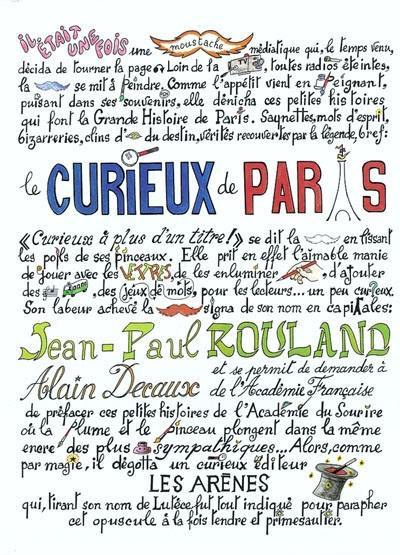 IL ÉTAIT UNE FOIS une moustache médiatique qui, le temps venu,
décida de tourner la page. Loin de la , toutes radios éteintes,
la se mit à Peindre. Comme l'appétit vient en Peignant,
puisant dans ses souvenirs, elle dénicha ces petites histoires
qui font la Grande Histoire de Paris. Saynettes, mots d'esprit,
bizarreries, clins d' du destin, vérités recouvertes par la légende, bref:
le CURIEUX de PARIS
« Curieux à plus d'un titre! » se dit la en lissant
les poils de ses pinceaux. Elle prit en effet l'aimable manie
de jouer avec les de les enluminer , d'ajouter
des , des jeux de mots, pour les lecteurs... un peu curieux.
Son labeur achevé la signa de son nom en capitales:
Jean-Paul ROULAND
et se permit de demander à
Alain Decaux de l'Académie Française
de préfacer ces petites histoires de l'Académie du Sourire
où la Plume et le pinceau plongent dans la même
encre des plus sympathiques... Alors, comme
par magie, il dégotta un curieux éditeur
LES ARÈNES
qui, tirant son nom de Lutèce fut tout indiqué pour parapher
cet opuscule à la fois tendre et primesautier.